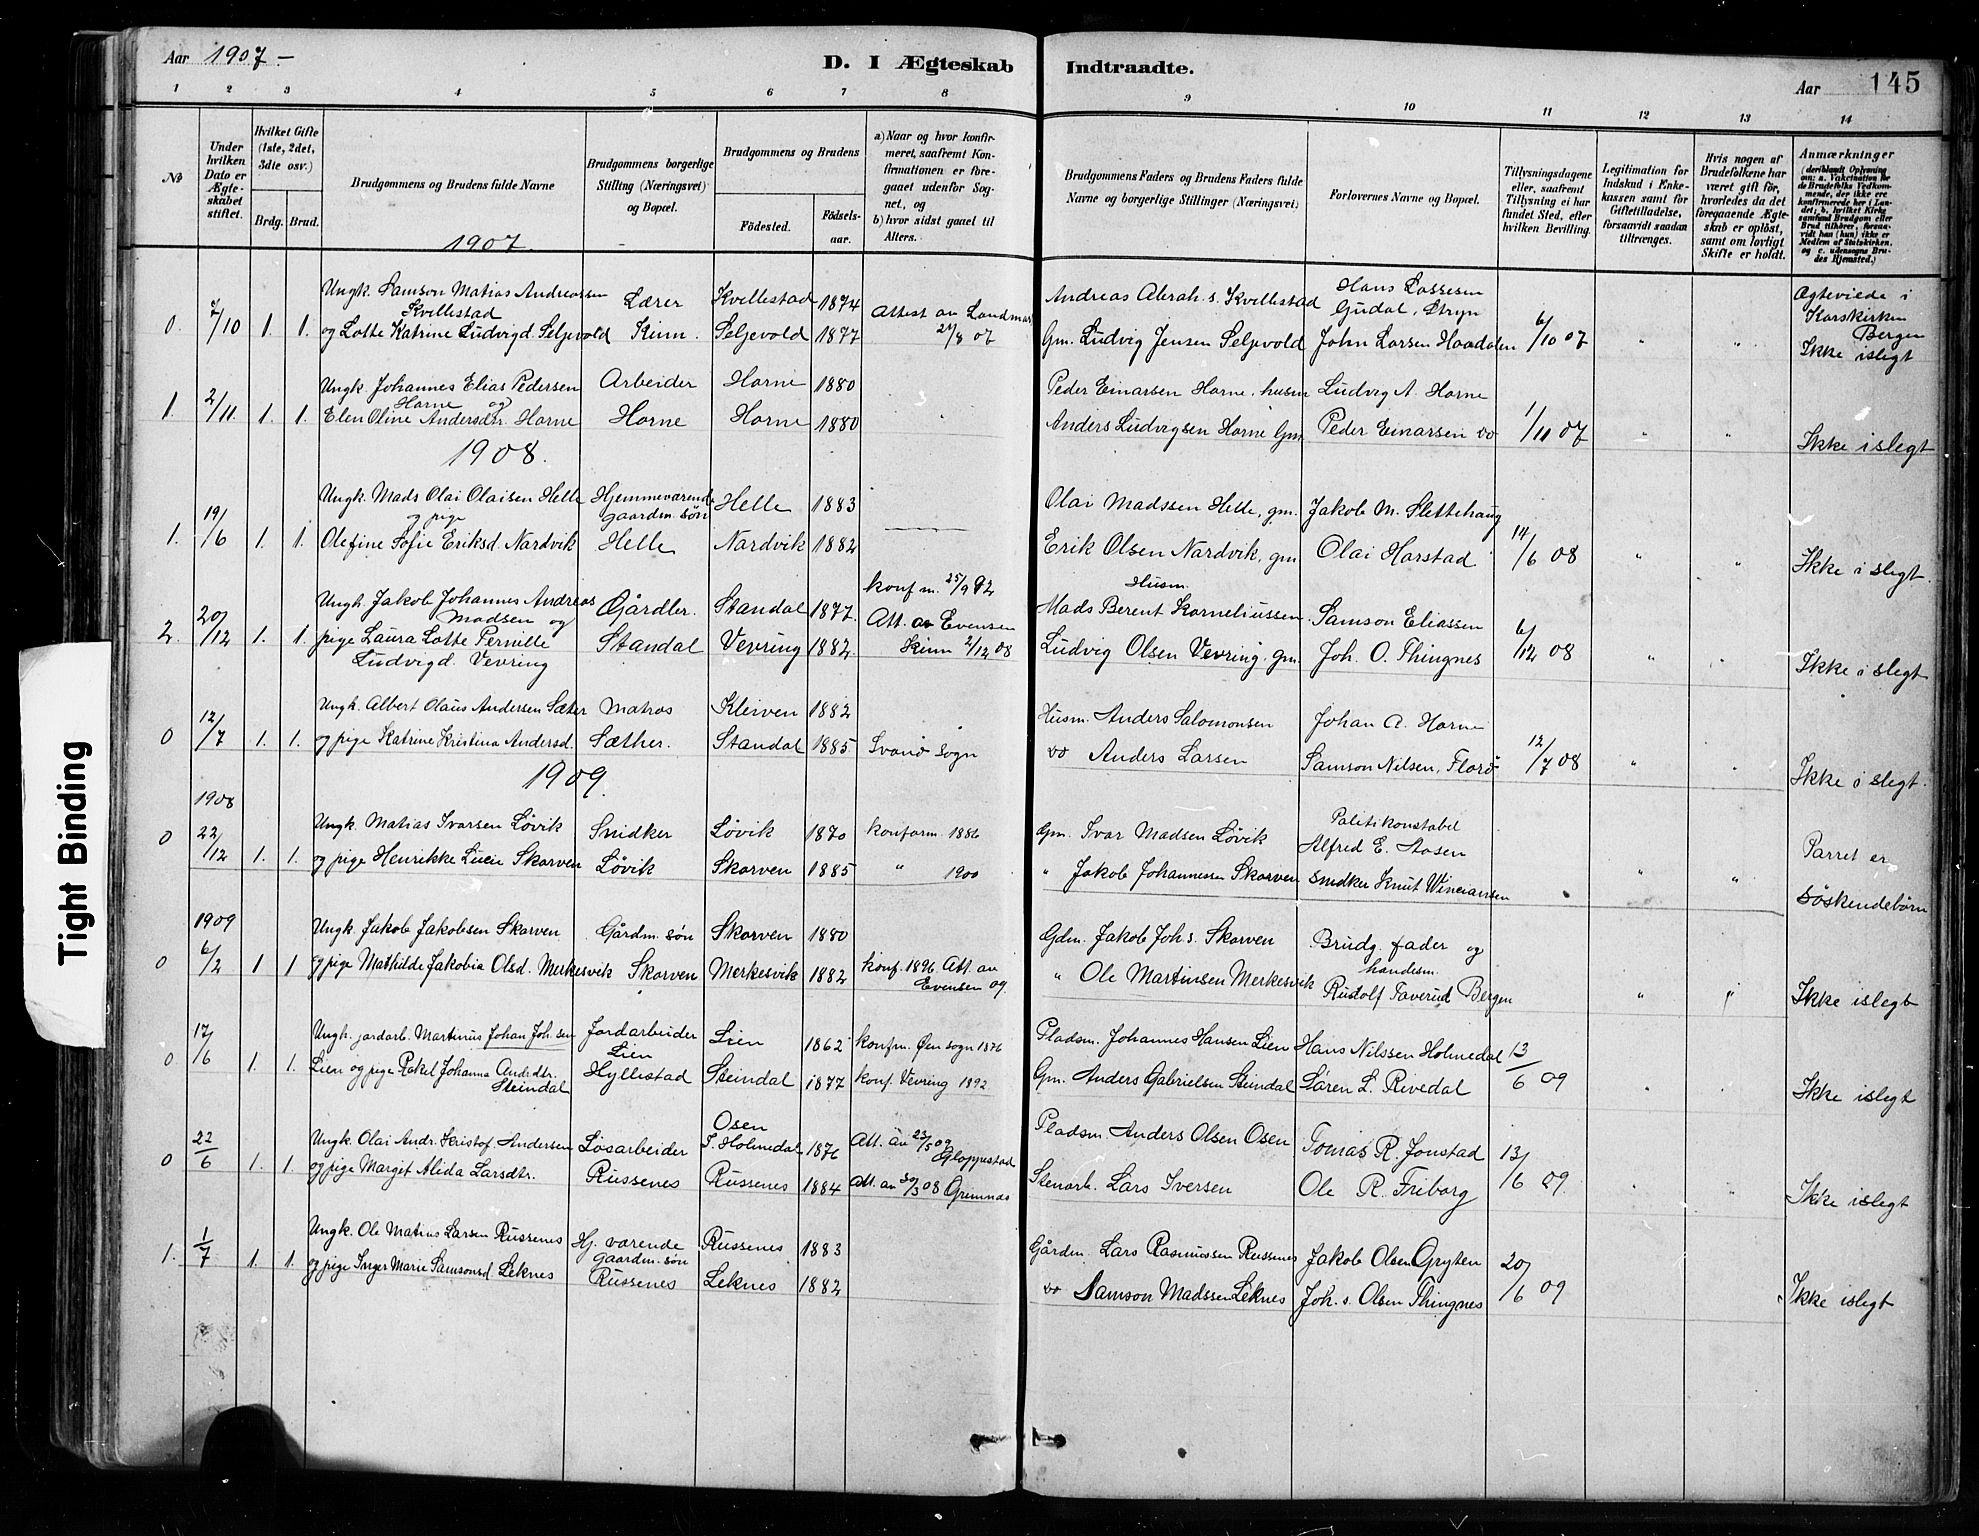 Aar 1907 -
D. I Ægteskab Indtraadte.
Aar 145
1 2 3 4 5 6 7 8 9 10 11 12 13 14
No
Under hvilken Dato er Ægteskabet stiftet.
Hvilket Gifte (1ste, 2det, 3die osv.)
Brdg. Brud.
Brudgommens og Brudens fulde Navne
Brudgommens borgerlige Stilling (Næringsvei) og Bopæl.
Brudgommens og Brudens
Fødested. Fødselsaar.
a) Naar og hvor konfirmeret, saafremt Konfirmationen er foregaaet udenfor Sognet, og
b) hvor sidst gaael til Alters.
Brudgommens Faders og Brudens Faders fulde Navne og borgerlige Stillinger (Næringsvei)
Forlovernes Navne og Bopæl.
Tillysningsdagene eller, saafremt Tillysning ei har fundet Sted, efter hvilken Bevilling.
Legitimation for Indskud i Enkekassen samt for Giftetilladelse, forsaavidt saadan tiltrænges.
Hvis nogen af Brudefolkene har været gift før, hvorledes da det foregaaende Ægteskab er opløst, samt om lovligt Skifte er holdt.
Anmærkninger
(deriblandt Oplysning om: a. Vakcination for de Brudefolks Vedkommende, der ikke ere konfirmerede her i Landet; b. hvilket Kirkesamfund Brudgom eller Brud tilhører, forsaavidt han (hun) ikke er Medlem af Statskirken, og c. udensogns Brudes Hjemsted.)
1907.
0. 7/10 1. 1. Ungk. Samson Matias Andreassen Kvillestad Lærer Kvellestad 1874 Attest av Landmar 24/8 07 Andreas Abrah.s. Kvillestad Hans Lassesen Gudal, Stryn Ægteviede i Korskirken Bergen
og Lotte Katrine Ludvigd. Seljevold Kinn. Seljevold 1877 Gm. Ludvig Jensen Seljevold John Larsen Haadalen 6/10 07 " " Ikke islegt
1. 2/11. 1. 1. Ungk. Johannes Elias Pedersen Horne og Arbeider Horne 1880 Peder Einarsen Horne, husm Ludvig A. Horne
Elen Oline Andersdtr. Horne Horne Horne 1880 Anders Ludvigsen Horne Gm. Peder Einarsen do 1/11 07 " " Ikke islegt
1908.
1. 19/6 1. 1. Ungk. Mads Olai Olaisen Helle og pige Hjemmeværende gaardm. søn Helle 1883 Olai Madssen Helle, gm. Jakob M. Slettehaug
Olefine Sofie Eriksd. Nardvik Helle Nardvik 1882 Erik Olsen Nardvik, gm. Olai Harstad 14/6 08 " " Ikke i slegt.
2. 20/12 1. 1. Ungk. Jakob Johannes Andreas Madsen og Gårdbr. Standal 1877. konf m. 25/9 92 Husm. Mads Berent Korneliussen Samson Eliassen
pige Laura Lotte Pernille Ludvigd. Vevring Standal Vevring 1882. Att. av Evensen Kinn 2/12 08 Ludvig Olsen Vevring. gm. Joh. O. Thingnes 6/12 08 " " Ikke i slegt
0 12/7 1. 1. Ungk. Albert Olaus Andersen Sæter Matros Kleiven 1882 Husm. Anders Salomonsen Johan A. Horne
og pige Katrine Kristina Andersd. Sæther. Standal 1885 Svanø sogn do Anders Larsen Samson Nilsen, Florø 12/7 08 " " Ikke i slegt.
1909.
1908
0 22/12 1. 1. Ungk. Matias Ivarsen Løvik Snidker Løvik 1870 konform. 1886 Gm. Ivar Madsen Løvik Politikonstabel Alfred E. Aasen
og pige Henrikke Lucie Skorven Løvik Skorven 1885 " 1900 " Jakob Johannessen Skorven snidker Knut " " Parret er søskendebørn
1909
0 6/2 1 1 Ungk. Jakob Jakobsen Skorven Gårdm. søn Skorven 1880 Gdm. Jakob Joh.s. Skorven Brudg. fader og
og pige Mathilde Jakobia Olsd. Merkesvik Skorven Merkesvik 1882 konf. 1896 Att. av Evensen 09. " Ole Martinsen Merkesvik handesm. Rudolf Taverud Bergen " " Ikke islegt
0 17/6 1. 1. Ungk. jordarb. Martinus Johan Joh.sen Jordarbeider Lien Lien 1862 konfm. Øen sogn 1876 Pladsm. Johannes Hansen Lien Hans Nilssen Holmedal 13/6 09
Lien og pige Rakel Johanna Andrdtr. Steindal Hyllestad Steindal 1877 konf. Vevring 1892 Gm. Anders Gabrielsen Steindal Søren L. Rivedal " " Ikke islegt
0 22/6 1. 1. Ungk. Olai Andr. Kristof. Andersen Løsarbeider Osen S. Holmedal 1876 Att. av 23/5 09 Gloppestad Pladsm. Anders Olsen Osen Tomas R. Jonstad 13/6 09.
og pige Margit Alida Larsdtr. Russenes Russenes 1884 Att. av 30/3 08 Grimnas Stenarb. Lars Iversen Ole R. Friborg Ikke islegt
1. 1/7 1. 1. Ungk. Ole Matias Larsen Russenes Hj. værende gaardm. søn Russenes 1883 Gårdm. Lars Rasmussen Russenes Jakob Olsen Gryten 20/6 09
og pige Inger Marie Samsonsd. Leknes Russenes Leknes 1882 do Samson Madssen Leknes Joh.s. Olsen Thingnes Ikke islegt
Tight Binding